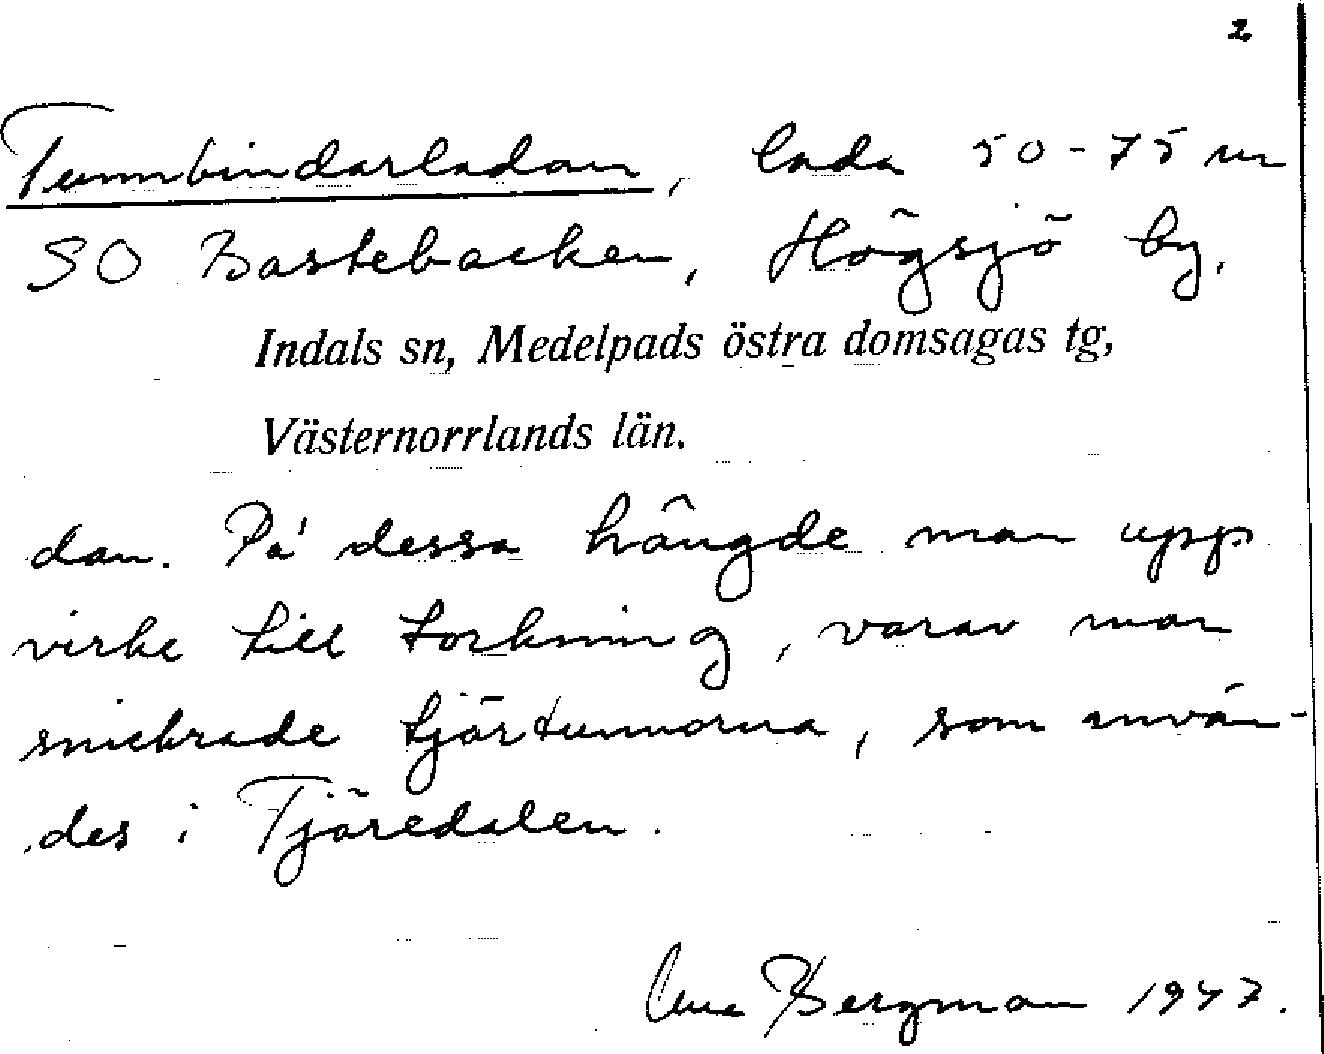 2
Tunnbindarladan, lada 50-75 m
SO Bastebacken, Högsjö by,
Indals sn, Medelpads östra domsagas tg,
Västernorrlands län.
dan. På dessa hängde man upp
virke till torkning, varav man
snickrade tjärtunnorna, som använ-
des i Tjäredalen.
Bergman 1947.